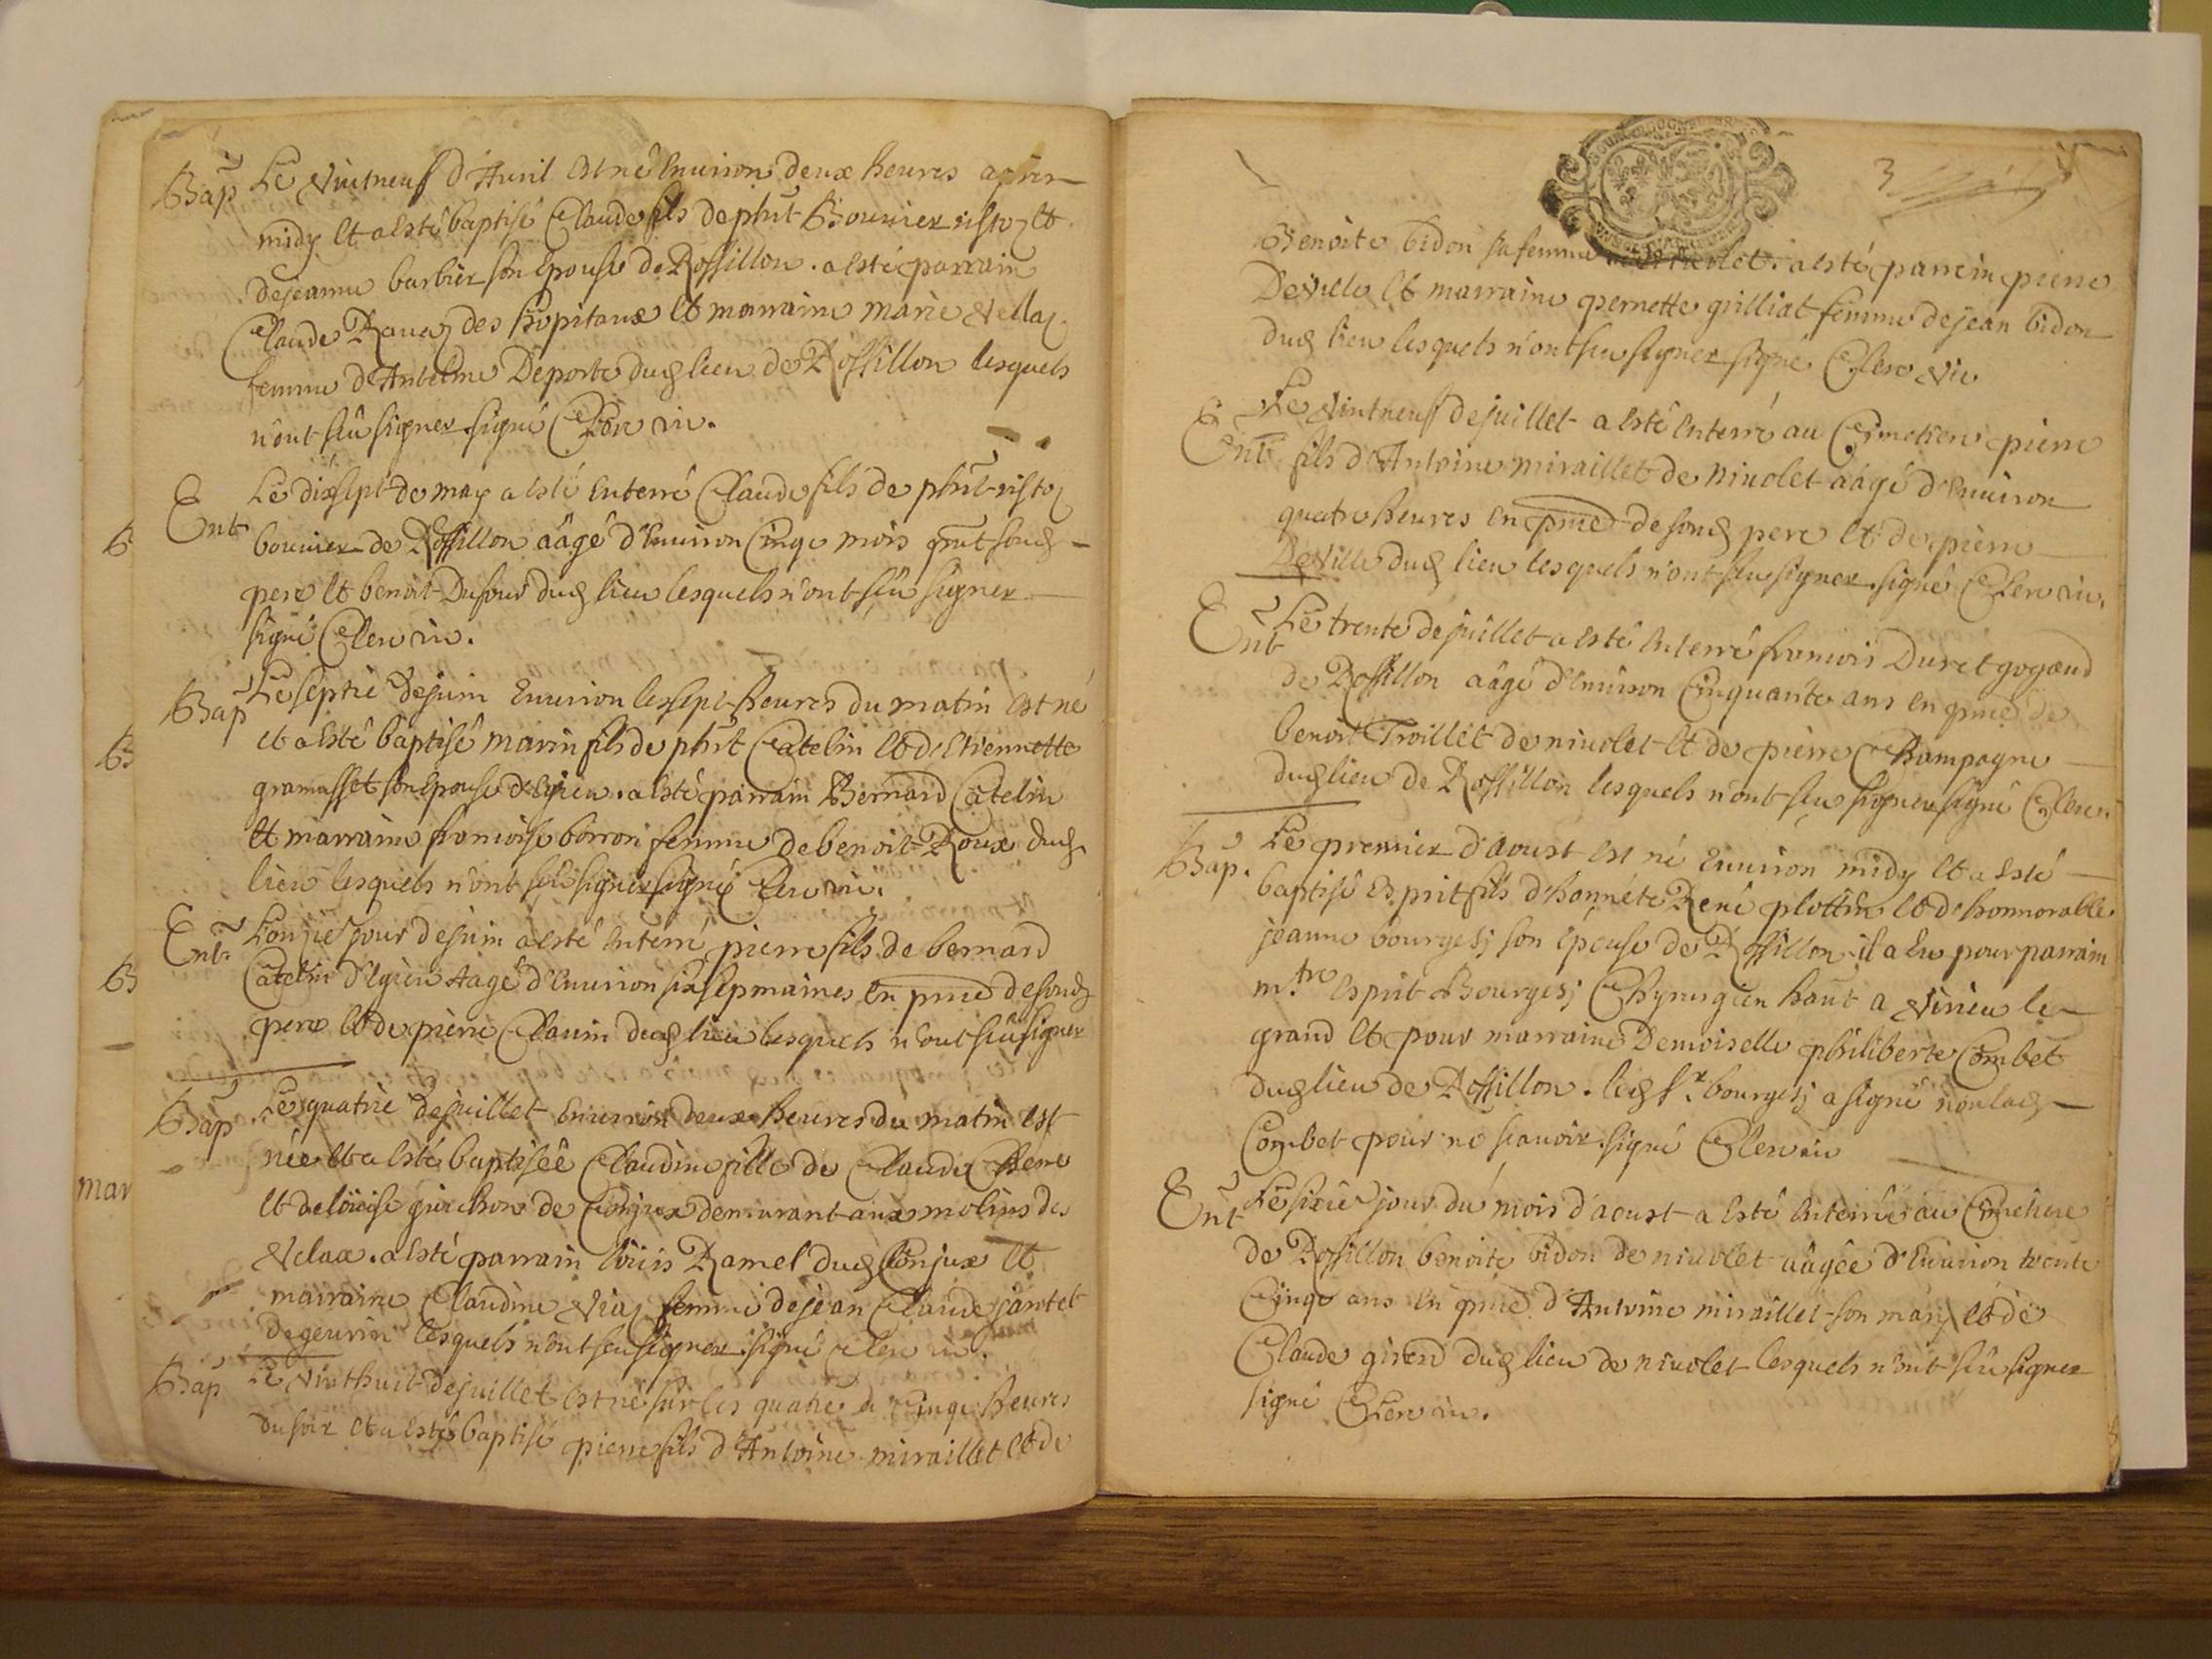 Bap Le Vintneuf d'Avril est né Environ deux heures apres
midy Et a esté baptisé Claude fils de phit Bouvier risto Et
de jeanne barbier son Epouse de Rossillon. a esté parrain
Claude Ravaz des hopitaux Et marraine marie Vellaz
femme d'Antelme Deporte dud lieu de Rossillon lesquels
n'ont sçû signer signé Clerc vic.
Ent Le dixsept de may a esté Enterré Claude fils de phit ristoz
bouvier de Rossillon aâgé d'Environ Cinq mois pnt soud
pere Et benoit Dufour dud lieu lesquels n'ont sçû signer
signé Clerc vic.
Bap Le septie de juin Environ les sept heures du matin est né
et a esté baptisé marin fils de phit Catelin Et d'Etiennette
gramasset son Epouse d'Egieu. a esté parrain Bernard Catelin
Et marraine francoise borron femme de benoit Roux dud
lieu lesquels n'ont sçû signer signé Clerc vic.
Ent L'onzie jour de juin a esté Enterré pierre fils de bernard
Catelin d'Egieu Aagé d'Environ six sepmaines En pnce de soud
pere Et de pierre Clavin dud lieu lesquels n'ont sçû signer
Bap Le quatrie de juillet Environ deux heures du matin est
née Et a esté baptisée Claudine fille de Claude Chene
Et de loüise guichon de Conjux demeurant aux molins des
Velax. a esté parrain loüis Ramel dud Conjux Et
marraine Claudine Viaz femme de jean Claude jantet
de gevrin lesquels n'ont sçu signer signé Clerc vic.
Bap Le Vinthuit de juillet est né sur les quatre a Cinq heures
du soir Et a esté baptisé pierre fils d'Antoine miraillet Et de
3
Benoite bidon sa femme de nivolet. a esté parrein pierre
DeVille Et marraine pernette grilliat femme de jean bidon
dud lieu lesquels n'ont sçu signer signé Clerc Vic
Ent Le Vintneuf de juillet a esté Enterré au Cimetiere pierre
fils d'Antoine miraillet de Nivolet aâgé d'Environ
quatre heures En pnce de soud pere Et de pierre
DeVille dud lieu lesquels n'ont sçu signer signé Clerc vic.
Ent Le trente de juillet a esté Enterré francois Duret gogoend
de Rossillon aâgé d'Environ Cinquante ans en pnce de
benoit Troillet de nivolet Et de pierre Champagne
dud lieu de Rossillon lesquels n'ont sçu signer signé Clerc.
Bap. Le premier d'Aoust est né Environ midy Et a Esté
baptisé Esprit fils d'honnéte René plottin Et d'honnorable
jeanne bourgesj son Epouse de Rossillon il a Eu pour parrain
m.tre Esprit Bourgesj Chyrurgien haut a Virieu le
grand Et pour marraine Demoiselle philiberte Combet
dud lieu de Rossillon. led sr. bourgesj a signé non lad
Combet pour ne scavoir signé Clerc vic
Ent Le sixie jour du mois d'aoust a Esté Enterrée au Cimetiere
de Rossillon benoite bidon de nivolet aâgée d'Environ trente
Cinq ans En pnce d'Antoine miraillet son mary Et de
Claude girerd dud lieu de nivolet lesquels n'ont sçû signer
signé Clerc vic.